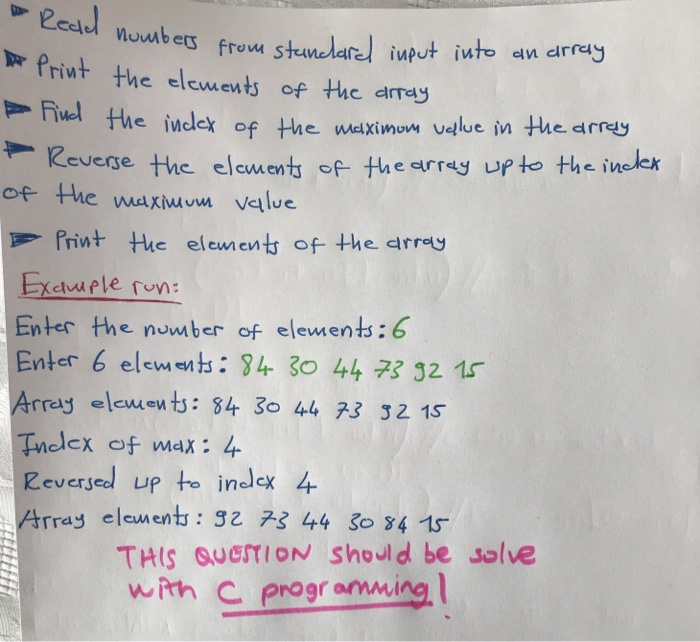 Read numbers from standard input into an array
Print the elements of the array
Find the index of the maximum value in the array
Reverse the elements of the array up to the index
of the maximum value
Print the elements of the array
Example run:
Enter the number of elements: 6
Enter 6 elements: 84 30 44 73 92 15
Array elements: 84 30 44 73 92 15
Index of max: 4
Reversed up to index 4
Array elements: 92 73 44 30 84 15
THIS QUESTION should be solve
with C programming!